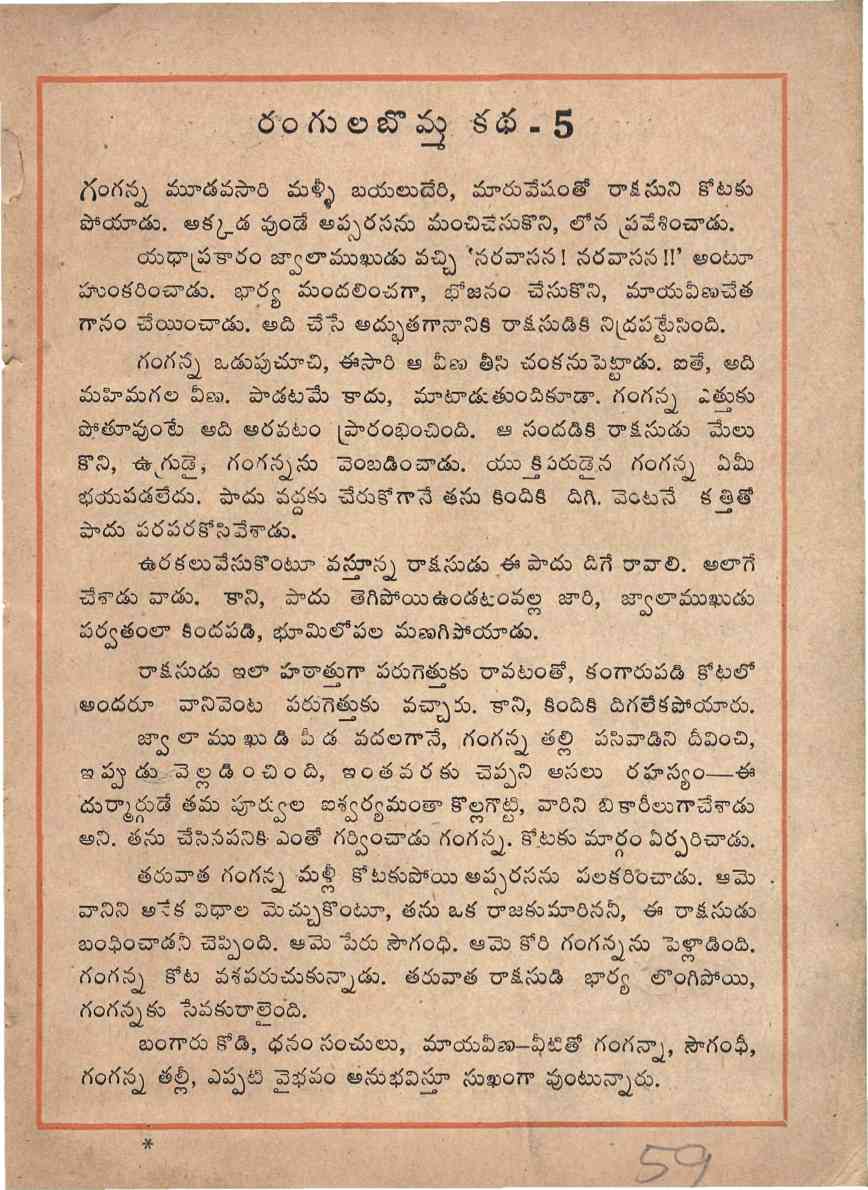 రంగులబొమ్మ కథ - 5
గంగన్న మూడవసారి మళ్ళీ బయలుదేరి, మారువేషంతో రాక్షసుని కోటకు
పోయాడు. అక్కడ వుండే అప్సరసను మంచిచేసుకొని, లోన ప్రవేశించాడు.
యథాప్రకారం జ్వాలాముఖుడు వచ్చి 'నరవాసన! నరవాసన!!' అంటూ
హుంకరించాడు. భార్య మందలించగా, భోజనం చేసుకొని, మాయవీణచేత
గానం చేయించాడు. అది చేసే అద్భుతగానానికి రాక్షసుడికి నిద్రపట్టేసింది.
గంగన్న ఒడుపుచూచి, ఈసారి ఆ వీణ తీసి చంకనుపెట్టాడు. ఐతే, అది
మహిమగల వీణ. పాడటమే కాదు, మాటాడుతుందికూడా. గంగన్న ఎత్తుకు
పోతూవుంటే అది అరవటం ప్రారంభించింది. ఆ సందడికి రాక్షసుడు మేలు
కొని, ఉగ్రుడై, గంగన్నను వెంబడించాడు. యుక్తిపరుడైన గంగన్న ఏమీ
భయపడలేదు. పాదు వద్దకు చేరుకోగానే తను కిందికి దిగి. వెంటనే కత్తితో
పాదు పరపరకోసివేశాడు.
ఉరకలువేసుకొంటూ వస్తూన్న రాక్షసుడు ఈ పాదు దిగే రావాలి. అలాగే
చేశాడు వాడు. కాని, పాదు తెగిపోయిఉండటంవల్ల జారి, జ్వాలాముఖుడు
పర్వతంలా కిందపడి, భూమిలోపల మణగిపోయాడు.
రాక్షసుడు ఇలా హఠాత్తుగా పరుగెత్తుకు రావటంతో, కంగారుపడి కోటలో
అందరూ వానివెంట పరుగెత్తుకు వచ్చారు. కాని, కిందికి దిగలేకపోయారు.
జ్వాలాముఖుడి పీడ వదలగానే, గంగన్న తల్లి పసివాడిని దీవించి,
ఇప్పుడు వెల్లడించింది, ఇంతవరకు చెప్పని అసలు రహస్యం—ఈ
దుర్మార్గుడే తమ పూర్వుల ఐశ్వర్యమంతా కొల్లగొట్టి, వారిని బికారీలుగాచేశాడు
అని. తను చేసినపనికి ఎంతో గర్వించాడు గంగన్న. కోటకు మార్గం ఏర్పరిచాడు.
తరువాత గంగన్న మళ్లీ కోటకుపోయి అప్సరసను పలకరించాడు. ఆమె
వానిని అనేక విధాల మెచ్చుకొంటూ, తను ఒక రాజకుమారిననీ, ఈ రాక్షసుడు
బంధించాడనీ చెప్పింది. ఆమె పేరు సౌగంధి. ఆమె కోరి గంగన్నను పెళ్లాడింది.
గంగన్న కోట వశపరుచుకున్నాడు. తరువాత రాక్షసుడి భార్య లొంగిపోయి,
గంగన్నకు సేవకురాలైంది.
బంగారు కోడి, ధనం సంచులు, మాయవీణ—వీటితో గంగన్నా, సౌగంధీ,
గంగన్న తల్లీ, ఎప్పటి వైభవం అనుభవిస్తూ సుఖంగా వుంటున్నారు.
*
59